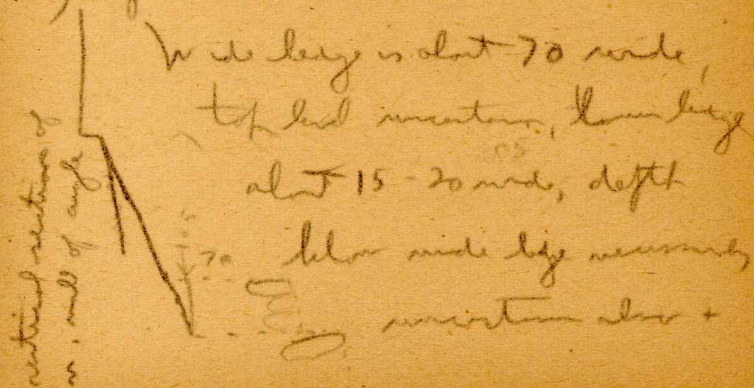 Wide ledge is about 70 wide,
top level uncertain, lower ledge
about 15-20 wide, depth
below wide ledge necessarily
uncertain also +
70
vertical section of
wall of angle